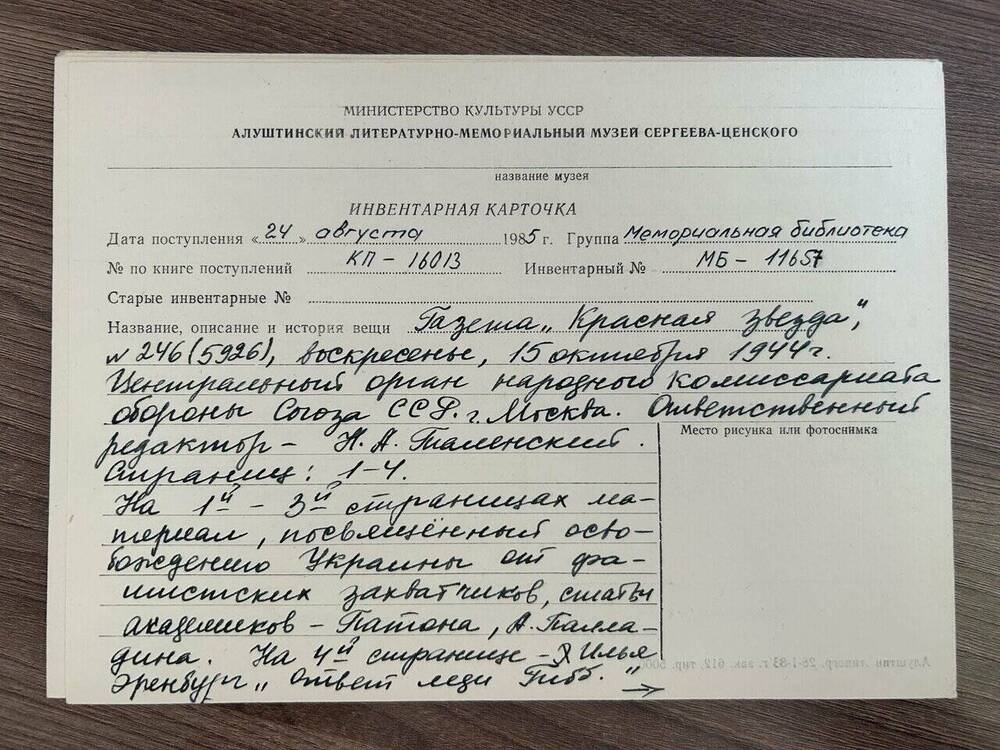 МИНИСТЕРСТВО КУЛЬТУРЫ УССР
АЛУШТИНСКИЙ ЛИТЕРАТУРНО-МЕМОРИАЛЬНЫЙ МУЗЕЙ СЕРГЕЕВА-ЦЕНСКОГО
название музея
ИНВЕНТАРНАЯ КАРТОЧКА
Дата поступления «24» августа 1985 г. Группа Мемориальная библиотека
№ по книге поступлений КП – 16013 Инвентарный № МБ – 11657
Старые инвентарные №
Название, описание и история вещи Газета „Красная звезда",
№ 246 (5926), воскресенье, 15 октября 1944 г.
Центральный орган народного комиссариата
обороны Союза ССР. г. Москва. Ответственный
редактор – Н. А. Таленский.
Место рисунка или фотоснимка
Страниц: 1–4.
На 1й – 3й страницах ма-
териал, посвящённый осво-
бождению Украины от фа-
шистских захватчиков, статьи
академиков – Патона, А. Палла-
дина. На 4й странице – Илья
Эренбург „Ответ леди Гибб." →
Алуштин. типогр. 26-1-83 г. зак. 612, тир. 5000